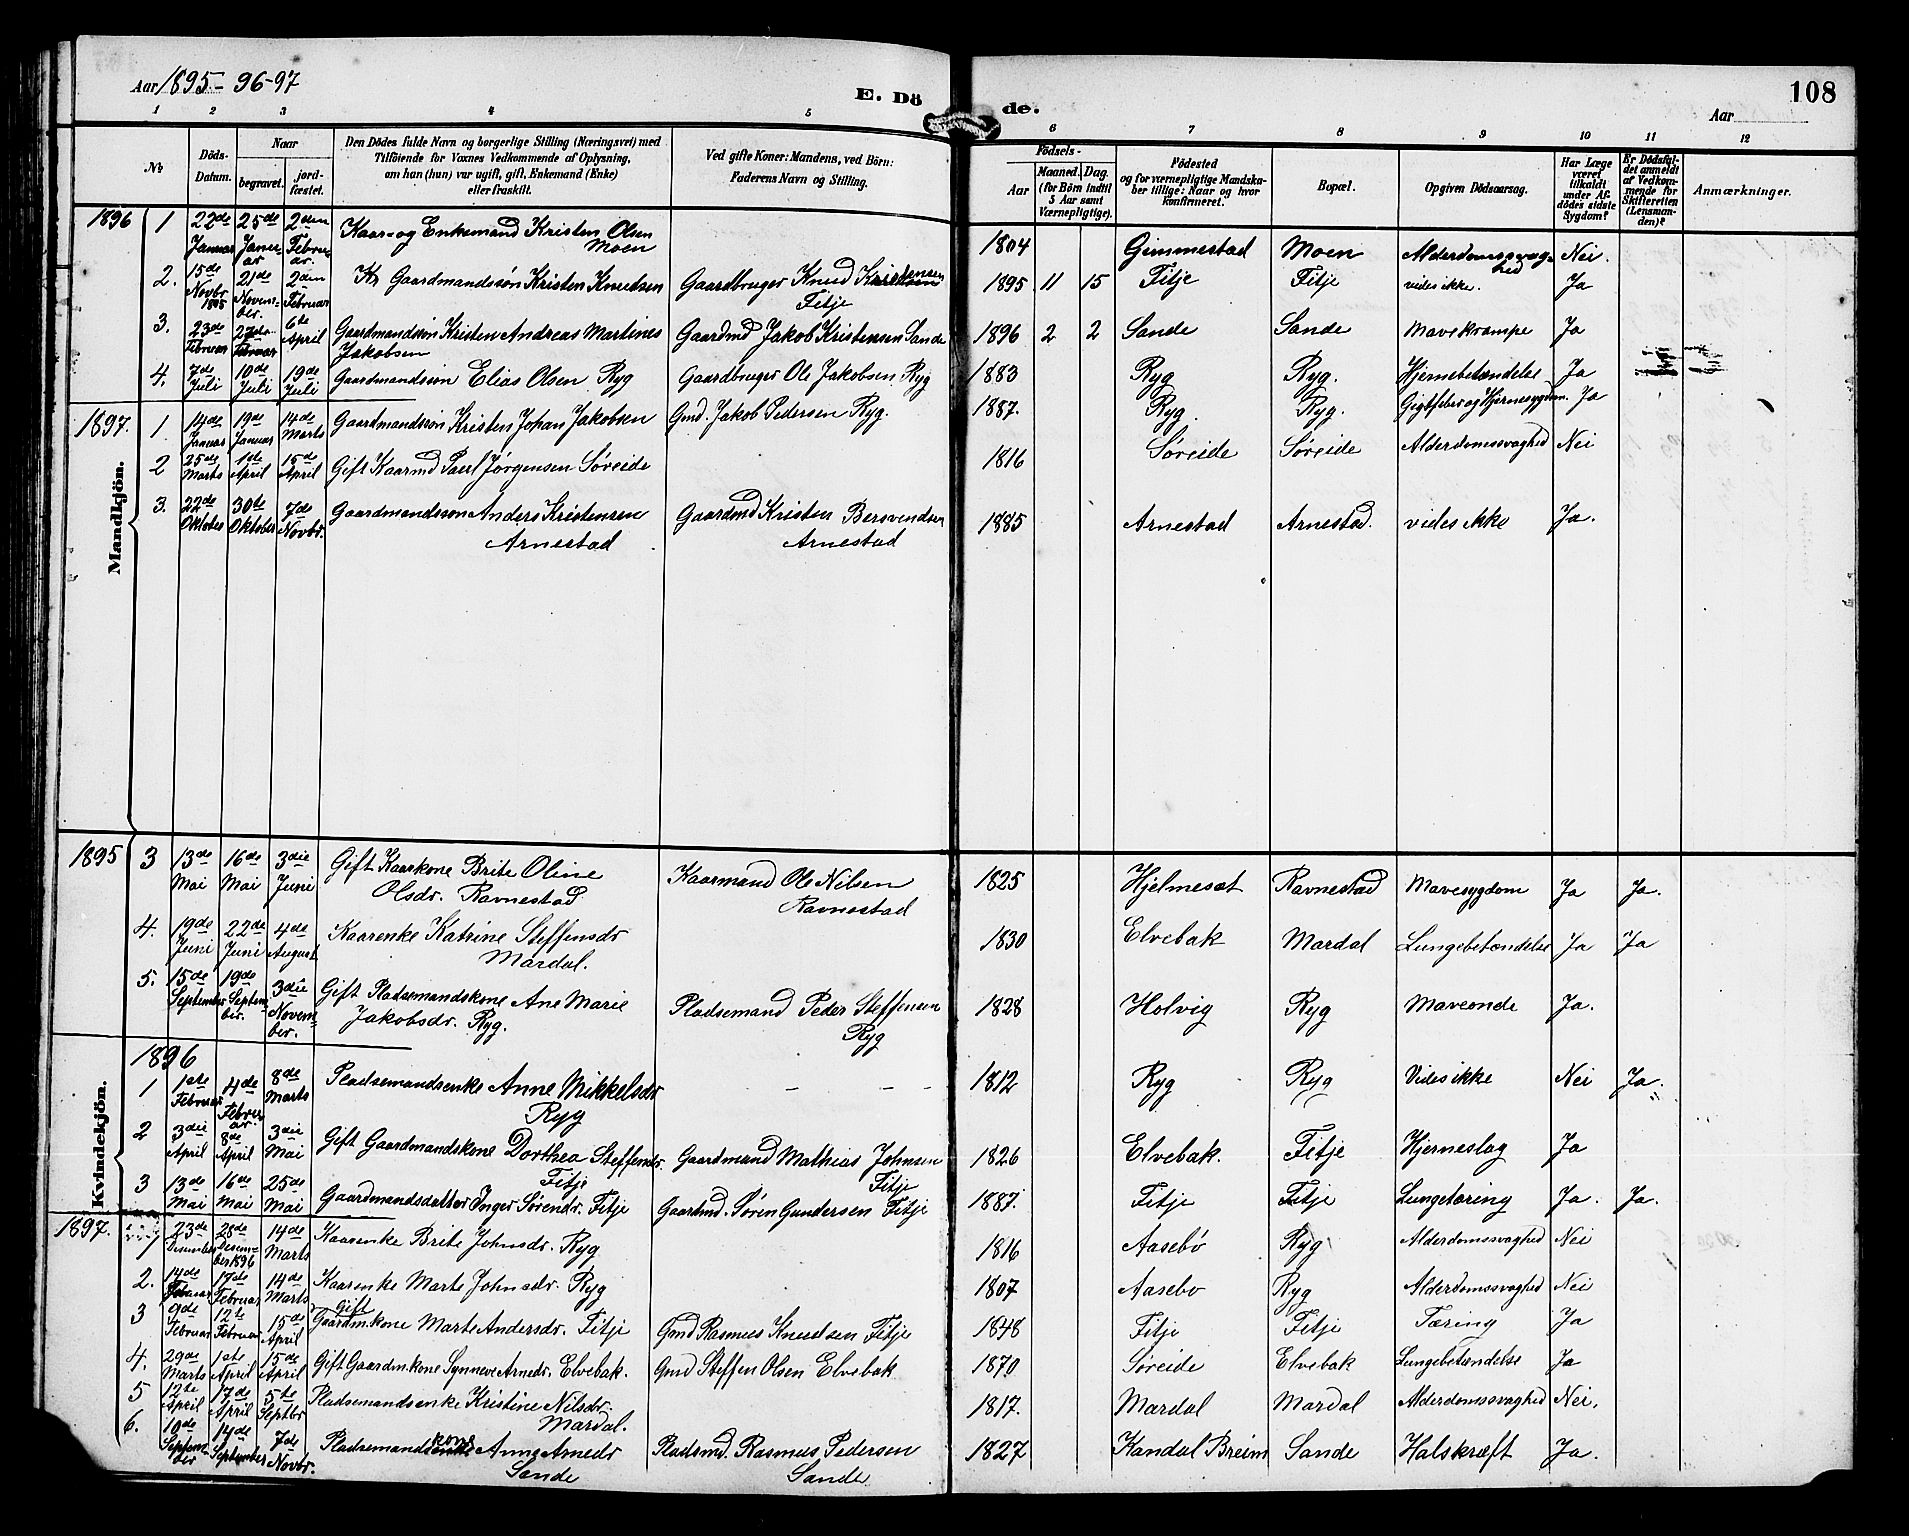 Aar 1895 - 96-97
E. Dö
de.
108
Aar
1 2 3 4 5 6 7 8 9 10 11 12
№
Döds-
Datum.
Naar
begravet.
jord-
fæstet.
Den Dödes fulde Navn og borgerlige Stilling (Næringsvei) med
Tilföiende for Voxnes Vedkommende af Oplysning,
om han (hun) var ugift, gift, Enkemand (Enke)
eller fraskilt.
Ved gifte Koner: Mandens, ved Börn:
Faderens Navn og Stilling.
Födsels-
Aar
Maaned. Dag.
(for Börn indtil
5 Aar samt
Værnepligtige).
Födested
og for værnepligtige Mandska-
ber tillige: Naar og hvor
konfirmeret.
Bopæl.
Opgiven Dödsaarsag.
Har Læge
været
tilkaldt
under Af-
dödes sidste
Sygdom?
Er Dödsfal-
det anmeldt
af Vedkom-
mende for
Skifteretten
(Lensman-
den)?
Anmærkninger.
Mandkjön.
1896 1 22de Januar 25de Januar 2den Februar Kaar- og Enkemand Kristen Olsen Moen 1804 Gimmestad Moen Alderdomssvaghed Nei.
2. 15de Novbr 1895 21de November. 2den Februar Gaardmandssøn Kristen Knutsen Gaardbruger Knud Kristensen Fitje 1895 11 15 Fitje Fitje vides ikke. Ja
3. 23de Februar 27de Februar 6te April Gaardmandssøn Kristen Andreas Martines Jakobsen Gaardmd Jakob Kristensen Sande 1896 2 2 Sande Sande Mavekrampe Ja
4. 7de Juli 10de Juli 19de Juli Gaardmandssøn Elias Olsen Ryg Gaardbruger Ole Jakobsen Ryg 1883 Ryg Ryg. Hjernebetændelse Ja
1897. 1. 14de Januar 19de Januar 14de Marts Gaardmandssøn Kristen Johan Jakobsen Gmd. Jakob Pedersen Ryg. 1887. Ryg. Ryg. Gigtfeber og Hjernesygdom. Ja
2 25de Marts 1ste April 15de April Gift Kaarmd Paul Jørgensen Søreide 1816 Søreide Søreide Alderdomssvaghed Nei
3. 22de Oktober 30te Oktober 7de Novbr. Gaardmandssøn Anders Kristensen Arnestad Gaardmd Kristen Bersvendsen Arnestad 1885 Arnestad Arnestad. vides ikke Ja.
Kvindekjön.
1895 3 13de Mai 16de Mai 3die Juni Gift Kaarkone Brite Oline Olsdr. Ravnestad Kaarmand Ole Nilsen Ravnestad 1825 Hjelmeset Ravnestad Mavesygdom Ja Ja.
4. 19de Juni 22de Juni 4de August Kaarenke Katrine Steffensdr Mardal. 1830 Elvebak Mardal Lungebetændelse Ja Ja
5. 15de September 19de September. 3die November. Gift Pladsemandskone Ane Marie Jakobsdr. Ryg. Pladsemand Peder Steffensen Ryg 1828 Holvig Ryg Maveonde Ja.
1896
1 1ste Februar 4de Februar. 8de Marts Pladsemandsenke Anne Mikkelsdr Ryg - - - 1812 Ryg Ryg Vides ikke Nei Ja.
2 3die April 8de April 3die Mai Gift Gaardmandskone Dorthea Steffensdr. Fitje Gaardmand Mathias Johnsen Fitje 1826 Elvebak. Fitje Hjerneslag Ja
3 13de Mai 16de Mai 25de Mai Gaardmandsdatter Inger Sørendr. Fitje Gaardmd. Søren Gundersen Fitje 1887. Fitje Fitje Lungetæring Ja. Ja.
1897. 1 23de Desember 28de Desember 1896 14de Marts Kaarenke Brite Johnsdr. Ryg 1816 Aasebø Ryg Alderdomssvaghed Nei
2. 14de Februar 17de Februar 14de Marts Kaarenke Marte Johnsdr. Ryg 1807 Aasebø Ryg Alderdomssvaghed Nei
3 9de Februar 12te Februar 15de April gift Gaardm.kone Marte Andersdr. Fitje Gmd Rasmus Knudsen Fitje 1848 Fitje Fitje Tæring Ja
4. 29de Marts 1ste April 15de April Gift Gaardm.kone Synneve Arnedr. Elvebak. Gmd Steffen Olsen Elvebak 1870 Søreide Elvebak Lungebetændelse Ja
5 12te April 17de April 5te Septbr Pladsemandsenke Kristine Nilsdr. Mardal. 1817. Mardal Mardal Alderdomssvaghed Nei.
6. 10de September 14de September 7de Novbr. Pladsemandskone Anne Arnedr Sande Pladsmd. Rasmus Pedersen Sande 1827 Kandal Breim Sande Halskræft Ja.